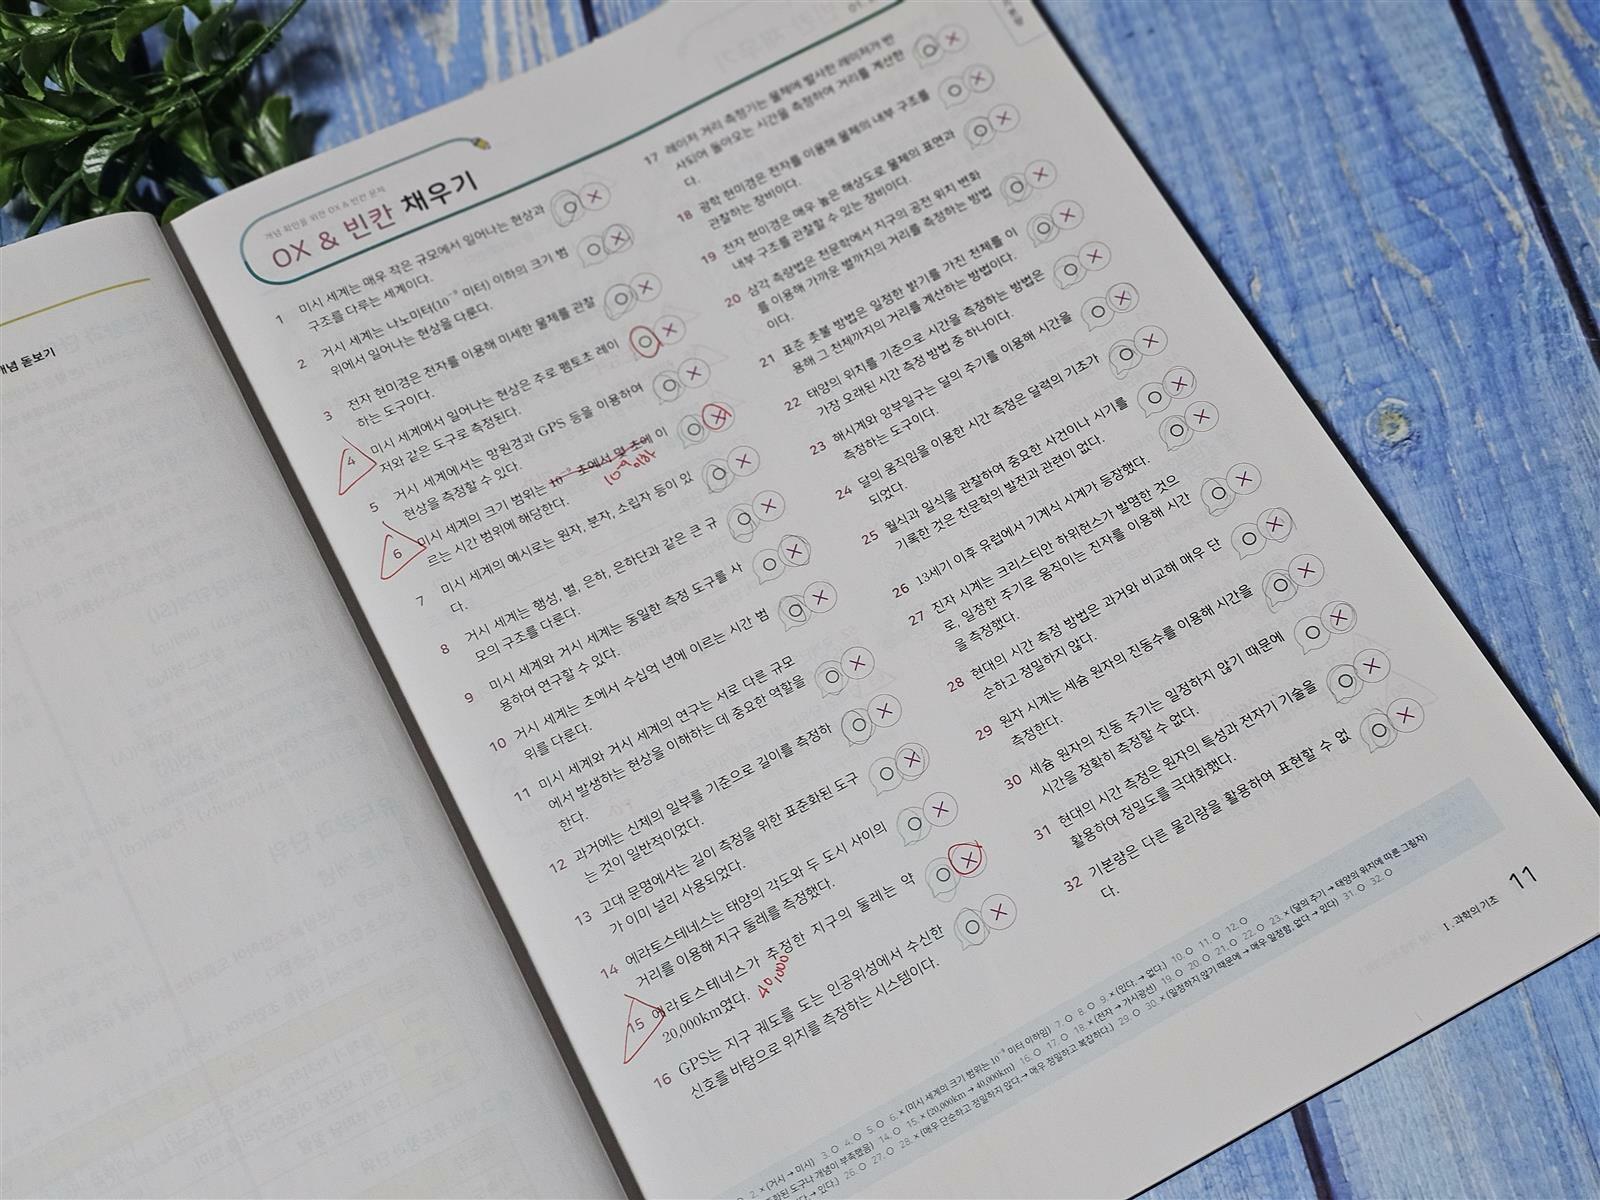 념 돋보기
개념 확인을 위한 OX & 빈칸 문제
OX & 빈칸 채우기
1 미시 세계는 매우 작은 규모에서 일어나는 현상과 O X
구조를 다루는 세계이다.
2 거시 세계는 나노미터(10⁻⁹ 미터) 이하의 크기 범 O X
위에서 일어나는 현상을 다룬다.
3 전자 현미경은 전자를 이용해 미세한 물체를 관찰 O X
하는 도구이다.
4 미시 세계에서 일어나는 현상은 주로 펨토초 레이 O X
저와 같은 도구로 측정된다.
5 거시 세계에서는 망원경과 GPS 등을 이용하여 O X
현상을 측정할 수 있다.
6 미시 세계의 크기 범위는 10⁻⁹ 초에서 몇 초에 이 O X
르는 시간 범위에 해당한다.
7 미시 세계의 예시로는 원자, 분자, 소립자 등이 있 O X
다.
8 거시 세계는 행성, 별, 은하, 은하단과 같은 큰 규 O X
모의 구조를 다룬다.
9 미시 세계와 거시 세계는 동일한 측정 도구를 사 O X
용하여 연구할 수 있다.
10 거시 세계는 초에서 수십억 년에 이르는 시간 범 O X
위를 다룬다.
11 미시 세계와 거시 세계의 연구는 서로 다른 규모 O X
에서 발생하는 현상을 이해하는 데 중요한 역할을
한다.
12 과거에는 신체의 일부를 기준으로 길이를 측정하 O X
는 것이 일반적이었다.
13 고대 문명에서는 길이 측정을 위한 표준화된 도구 O X
가 이미 널리 사용되었다.
14 에라토스테네스는 태양의 각도와 두 도시 사이의 O X
거리를 이용해 지구 둘레를 측정했다.
15 에라토스테네스가 추정한 지구의 둘레는 약 O X
20,000km였다. 40,000
16 GPS는 지구 궤도를 도는 인공위성에서 수신한 O X
신호를 바탕으로 위치를 측정하는 시스템이다.
17 레이저 거리 측정기는 물체에 발사한 레이저가 반 O X
사되어 돌아오는 시간을 측정하여 거리를 계산한
다.
18 광학 현미경은 전자를 이용해 물체의 내부 구조를 O X
관찰하는 장비이다.
19 전자 현미경은 매우 높은 해상도로 물체의 표면과 O X
내부 구조를 관찰할 수 있는 장비이다.
20 삼각 측량법은 천문학에서 지구의 공전 위치 변화 O X
를 이용해 가까운 별까지의 거리를 측정하는 방법
이다.
21 표준 촛불 방법은 일정한 밝기를 가진 천체를 이 O X
용해 그 천체까지의 거리를 계산하는 방법이다.
22 태양의 위치를 기준으로 시간을 측정하는 방법은 O X
가장 오래된 시간 측정 방법 중 하나이다.
23 해시계와 앙부일구는 달의 주기를 이용해 시간을 O X
측정하는 도구이다.
24 달의 움직임을 이용한 시간 측정은 달력의 기초가 O X
되었다.
25 월식과 일식을 관찰하여 중요한 사건이나 시기를 O X
기록한 것은 천문학의 발전과 관련이 없다.
26 13세기 이후 유럽에서 기계식 시계가 등장했다. O X
27 진자 시계는 크리스티안 하위헌스가 발명한 것으 O X
로, 일정한 주기로 움직이는 진자를 이용해 시간
을 측정했다.
28 현대의 시간 측정 방법은 과거와 비교해 매우 단 O X
순하고 정밀하지 않다.
29 원자 시계는 세슘 원자의 진동수를 이용해 시간을 O X
측정한다.
30 세슘 원자의 진동 주기는 일정하지 않기 때문에 O X
시간을 정확히 측정할 수 없다.
31 현대의 시간 측정은 원자의 특성과 전자기 기술을 O X
활용하여 정밀도를 극대화했다.
32 기본량은 다른 물리량을 활용하여 표현할 수 없 O X
다.
2. × (거시 → 미시) 3. O 4. O 5. O 6. × (미시 세계의 크기 범위는 10⁻⁹ 미터 이하임) 7. O 8. O 9. × (있다. → 없다.) 10. O 11. O 12. O
화된 도구나 개념이 부족했음) 14. O 15. × (20,000km → 40,000km) 16. O 17. O 18. × (전자 → 가시광선) 19. O 20. O 21. O 22. O 23. × (달의 주기 → 태양의 위치에 따른 그림자)
다 → 있다.) 26. O 27. O 28. × (매우 단순하고 정밀하지 않다. → 매우 정밀하고 복잡하다.) 29. O 30. × (일정하지 않기 때문에 → 매우 일정함, 없다 → 있다) 31. O 32. O
I. 과학의 기초 11